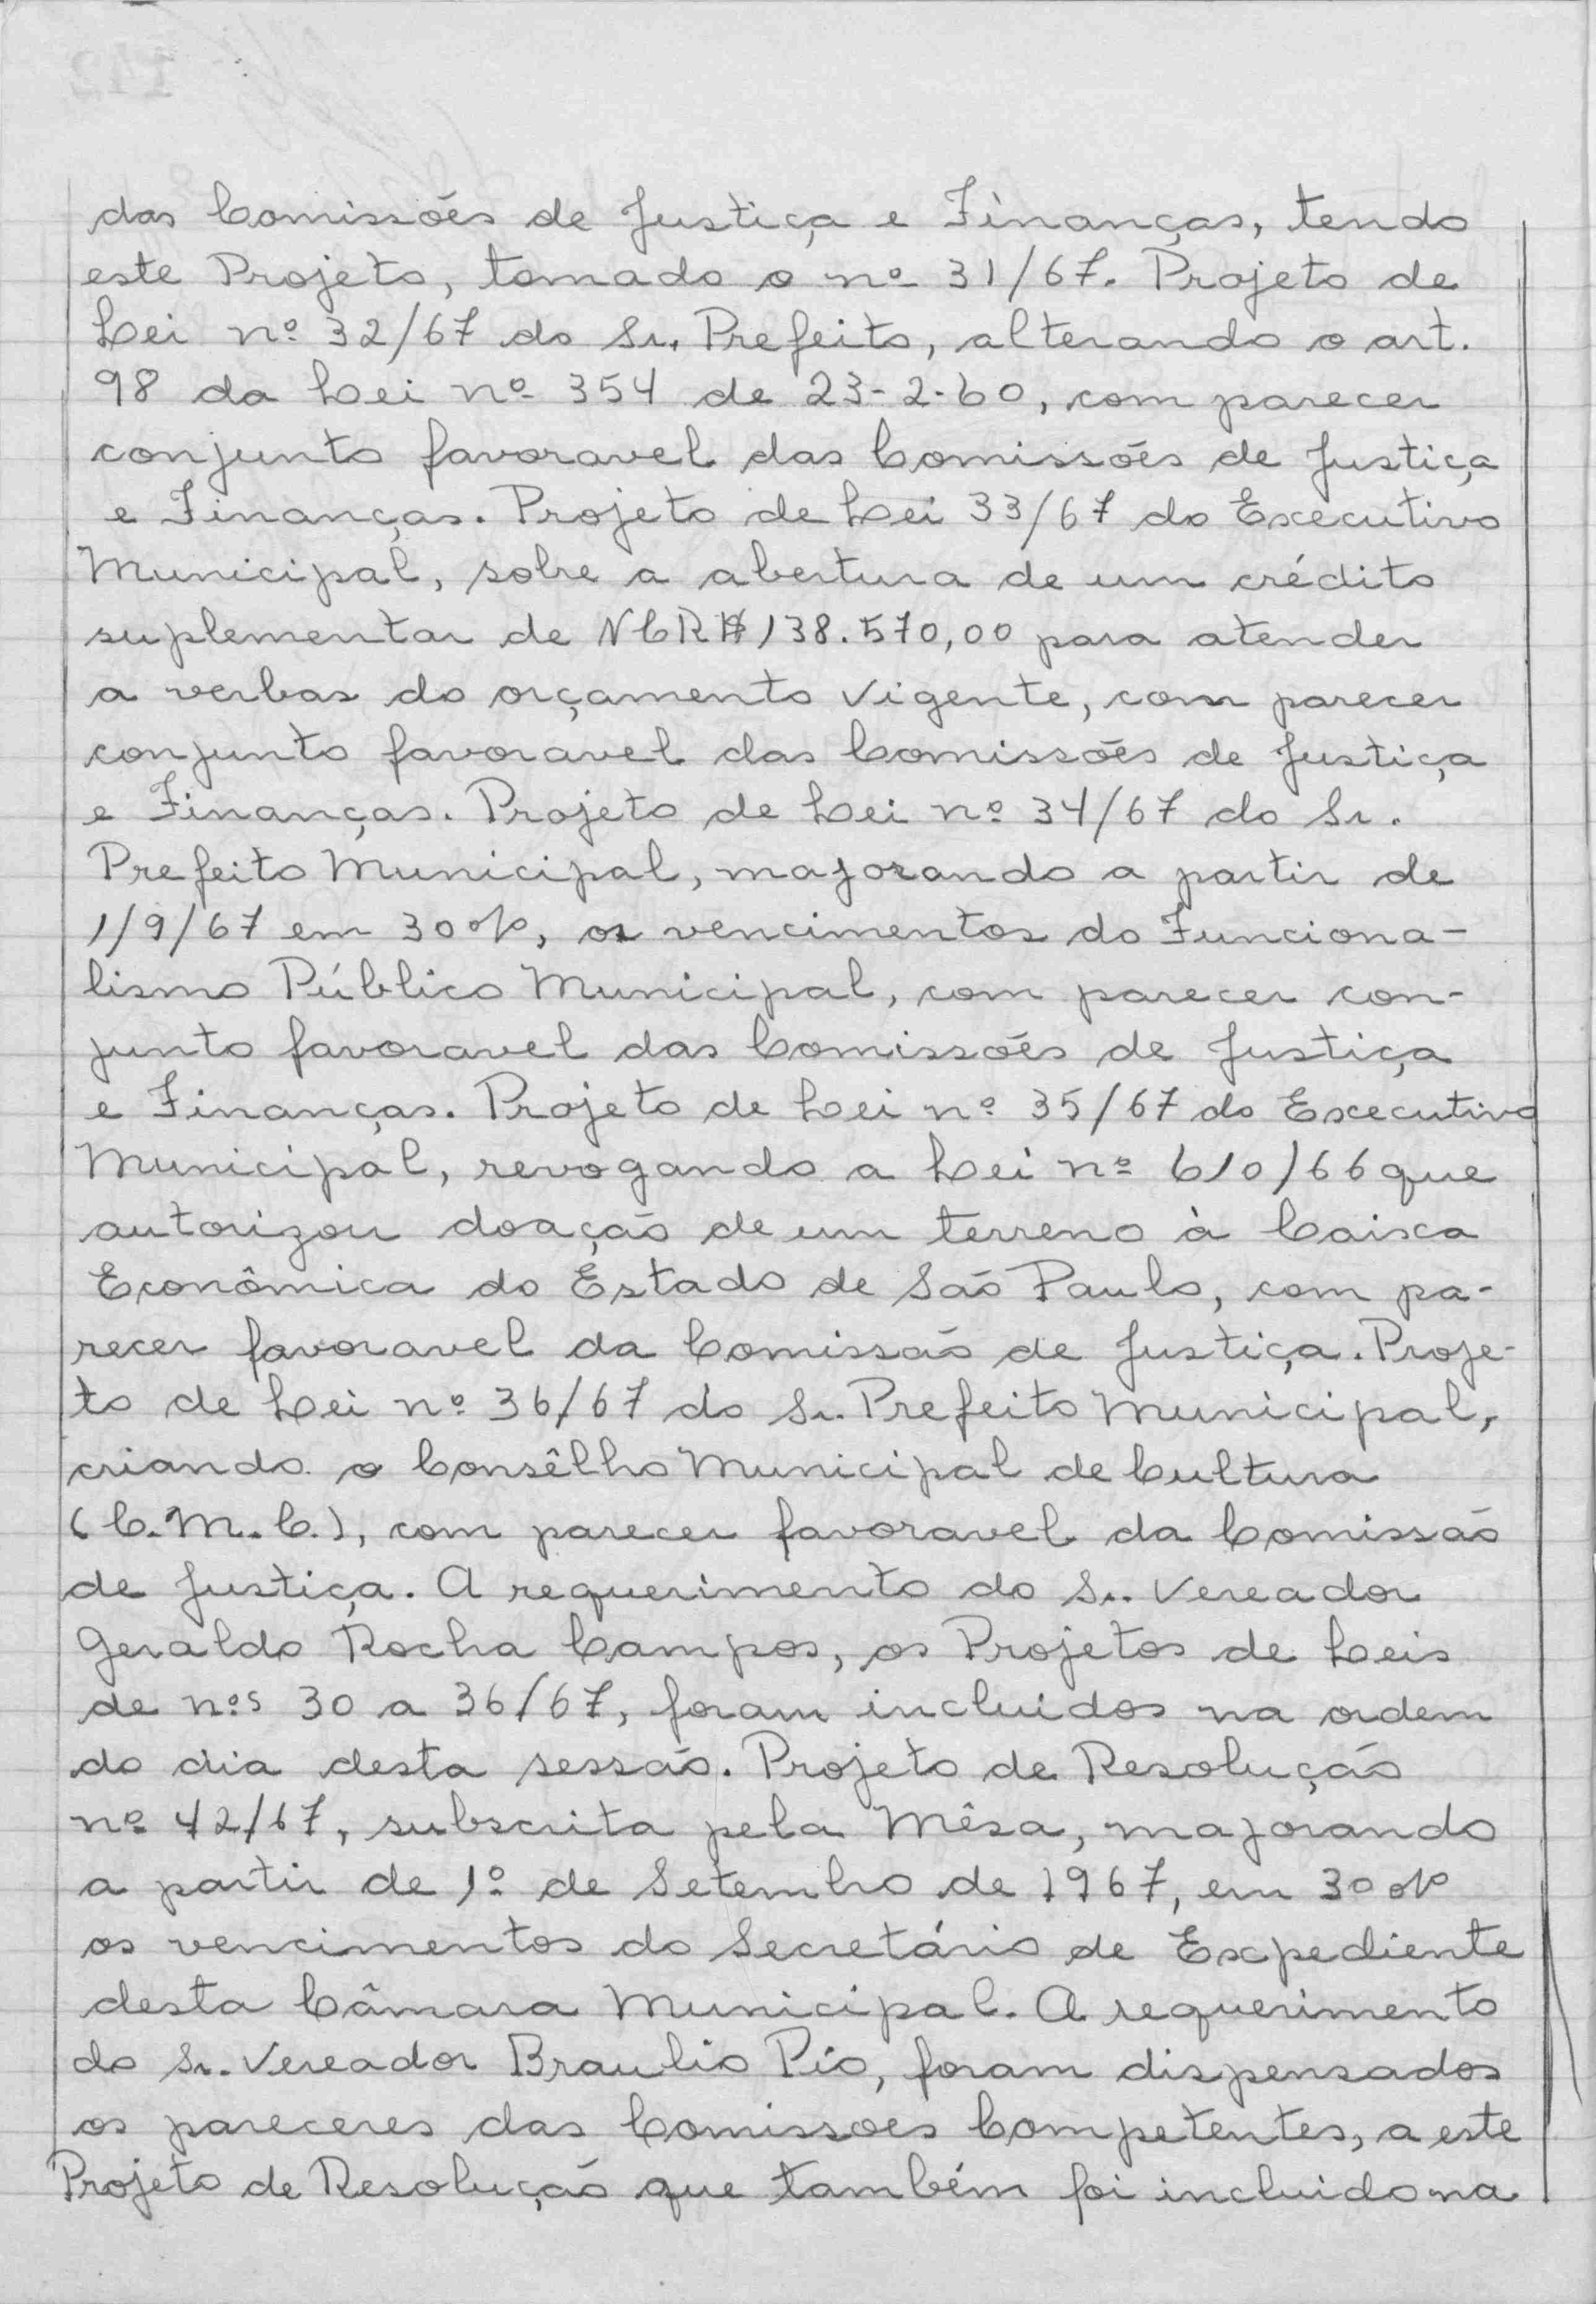 das Comissões de Justiça e Finanças, tendo
este Projeto, tomado o nº 31/67. Projeto de
Lei nº 32/67 do Sr. Prefeito, alterando o art.
98 da Lei nº 354 de 23-2-60, com parecer
conjunto favoravel das Comissões de Justiça
e Finanças. Projeto de Lei 33/67 do Executivo
Municipal, sobre a abertura de um crédito
suplementar de NCR$ 138.570,00 para atender
a verbas do orçamento vigente, com parecer
conjunto favoravel das Comissões de Justiça
e Finanças. Projeto de Lei nº 34/67 do Sr.
Prefeito Municipal, majorando a partir de
1/9/67 em 30%, os vencimentos do Funciona-
lismo Público Municipal, com parecer con-
junto favoravel das Comissões de Justiça
e Finanças. Projeto de Lei nº 35/67 do Executivo
Municipal, revogando a Lei nº 610/66 que
autorizou doação de um terreno à Caixa
Econômica do Estado de São Paulo, com pa-
recer favoravel da Comissão de Justiça. Proje-
to de Lei nº 36/67 do Sr. Prefeito Municipal,
criando o Consêlho Municipal de Cultura
(C.M.C.), com parecer favoravel da Comissão
de Justiça. A requerimento do Sr. Vereador
Geraldo Rocha Campos, os Projetos de Leis
de nºs 30 a 36/67, foram incluidos na ordem
do dia desta sessão. Projeto de Resolução
nº 42/67, subscrita pela Mêsa, majorando
a partir de 1º de Setembro de 1967, em 30%
os vencimentos do Secretário de Expediente
desta Câmara Municipal. A requerimento
do Sr. Vereador Braulio Pio, foram dispensados
os pareceres das Comissoes Competentes, a este
Projeto de Resolução que também foi incluido na